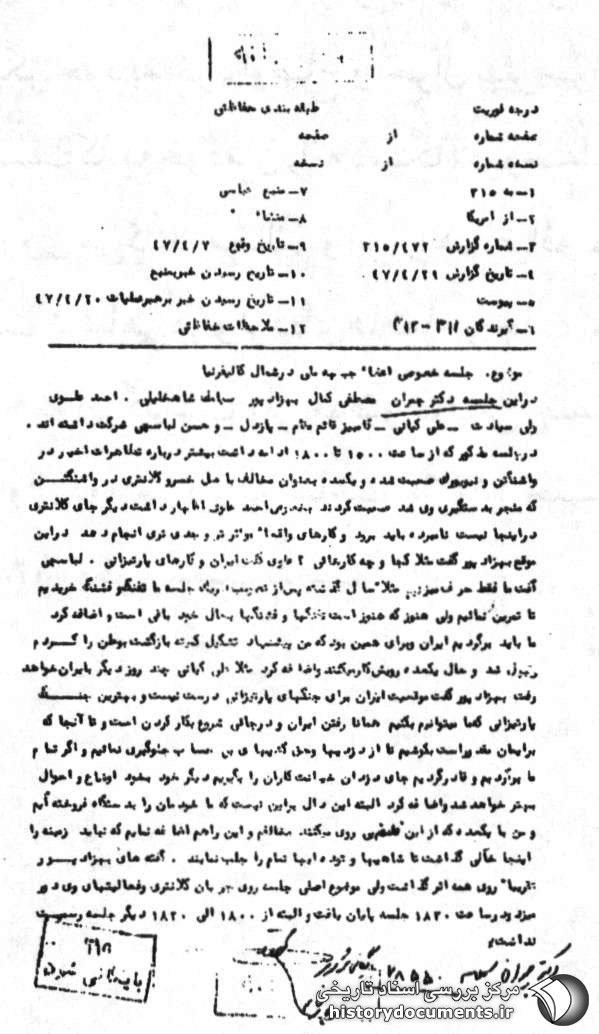 درجه فوریت
طبقه بندی حفاظتی
صفحه شماره از صفحه
نسخه شماره از نسخه
۱- به ۲۱۵
۷- منبع عباسی
۲- از امریکا
۸- منشاء " "
۳- شماره گزارش ۲۱۵/۴۷۲
۹- تاریخ وقوع ۴۷/۴/۷
۴- تاریخ گزارش ۴۷/۴/۲۹
۱۰- تاریخ رسیدن خبر بمنبع
۵- پیوست
۱۱- تاریخ رسیدن خبر برهبر عملیات ۴۷/۴/۲۰
۶- گیرندگان ۳۱۱ - ۳۱۲
۱۲- ملاحظات حفاظتی
موضوع. جلسه خصوصی اعضاء جبهه ملی در شمال کالیفرنیا
در این جلسه دکتر چمران مصطفی کمال بهزاد پور سیامک شاهخلیلی . احمد علوی
ولی سیادت - علی کیانی - کامبیز قائم مقام - پازدل - و حسن لباسچی شرکت داشته اند .
در جلسه مذکور که از ساعت ۱۵۰۰ تا ۱۸۰۰ ادامه داشت بیشتر درباره تظاهرات اخیر در
واشنگتن و نیویورک صحبت شده و یکعده بعنوان مخالف با عمل خسرو کلانتری در واشنگتن
که منجر بدستگیری وی شد صحبت کردند احمد علوی اظهار داشت دیگر جای کلانتری
در اینجا نیست نامبرده باید برود و کارهای واقعا" موثر تر و جدی تری انجام دهد در این
موقع بهزاد پور گفت مثلا کجا و چه کارهائی ؟ علوی گفت ایران و کارهای پارتیزانی . لباسچی
گفت ما فقط حرف میزنیم مثلا" سال گذشته پس از تصویب جلسه ما تفنگ و فشنگ خریدیم
تا تمرین نمائیم ولی هنوز که هنوز است تفنگها و فشنگها بحال خود باقی است و اضافه کرد
ما باید برگردیم ایران و برای همین بود که من پیشنهاد تشکیل کمیته بازگشت بوطن را کردم
قبول شد و حال یکعده رویش کار میکنند و اضافه کرد مثلا علی کیانی چند روز دیگر بایران خواهد
رفت بهزاد پور گفت موقعیت ایران برای جنگهای پارتیزانی درست نیست و بهترین جنگ
پارتیزانی که ما میتوانیم بکنیم همانا رفتن ایران و در جائی شروع بکار کردن است و تا آنجا که
برایمان مقدور است بکوشیم تا از دزدیها و حق کشیهای بی حساب جلوگیری نمائیم و اگر تمام
ما برگردیم و قادر گردیم جای دزدان خیانت کاران را بگیریم دیگر خود بخود اوضاع و احوال
بهتر خواهد شد و اضافه کرد البته این دال بر این نیست که ما خودمان را بدستگاه فروخته ایم
و من با یکعده که از این روی میکنند مخالفم و این را هم اضافه نمایم که نباید زمینه را
اینجا خالی گذاشت تا شاهیها و توده ایها تمام را جلب نمایند . گفته های بهزاد پور
تقریبا" روی همه اثر گذاشت ولی موضوع اصلی جلسه روی جریان کلانتری و فعالیتهای وی دور
میزد و در ساعت ۱۸۳۰ جلسه پایان یافت و البته از ۱۸۰۰ الی ۱۸۳۰ دیگر جلسه رسمیت
نداشت
دکتر چمران ۷۸۵۵۰
بایگانی شود
مرکز بررسی اسناد تاریخی
historydocuments.ir